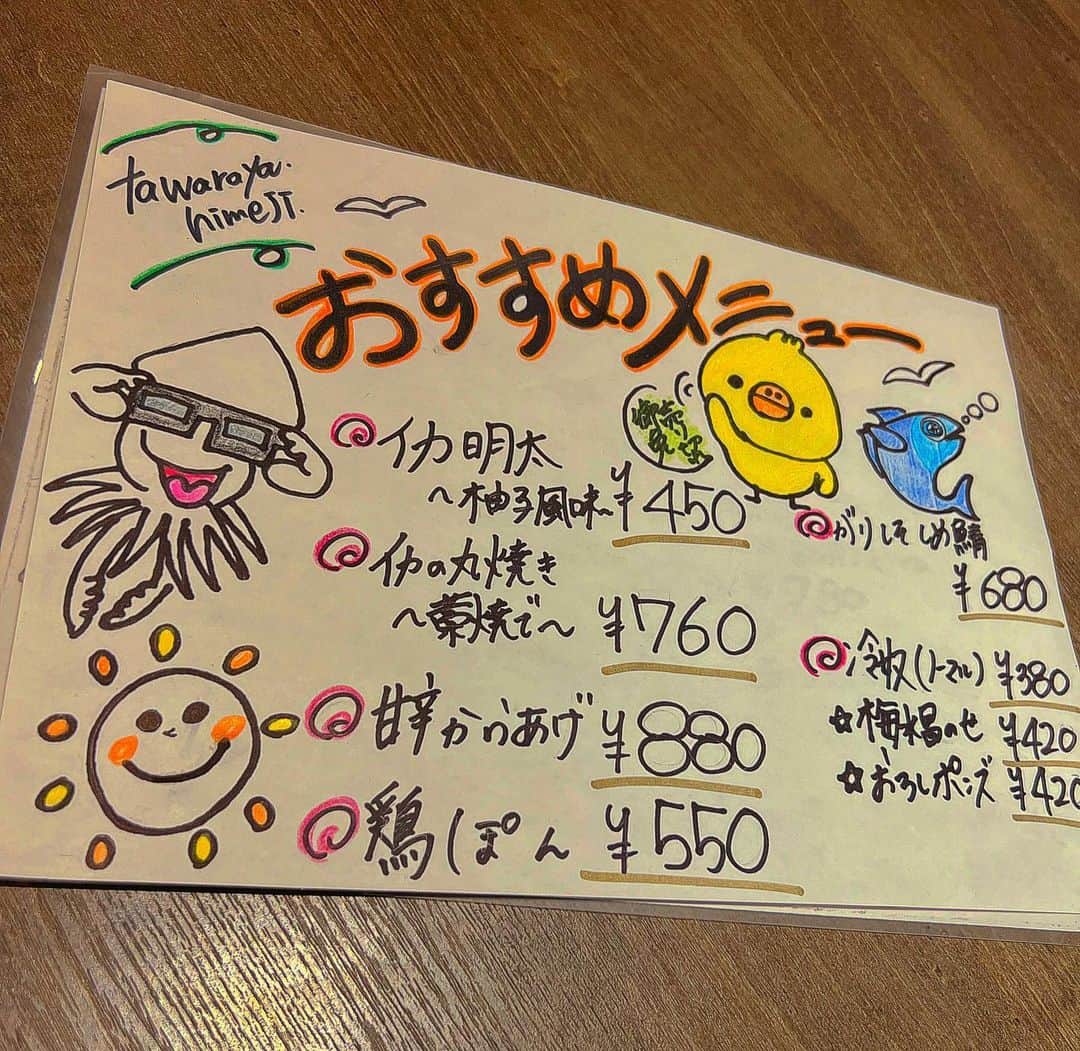 tawaraya
himeji
おすすめメニュー
イカ明太
〜柚子風味〜 ¥450
イカの丸焼き
〜藁焼で〜 ¥760
甘辛からあげ ¥880
鶏ぽん ¥550
がりしそしめ鯖
¥680
冷奴(ノーマル) ¥380
☆梅水晶のせ ¥420
☆おろしポンズ ¥420